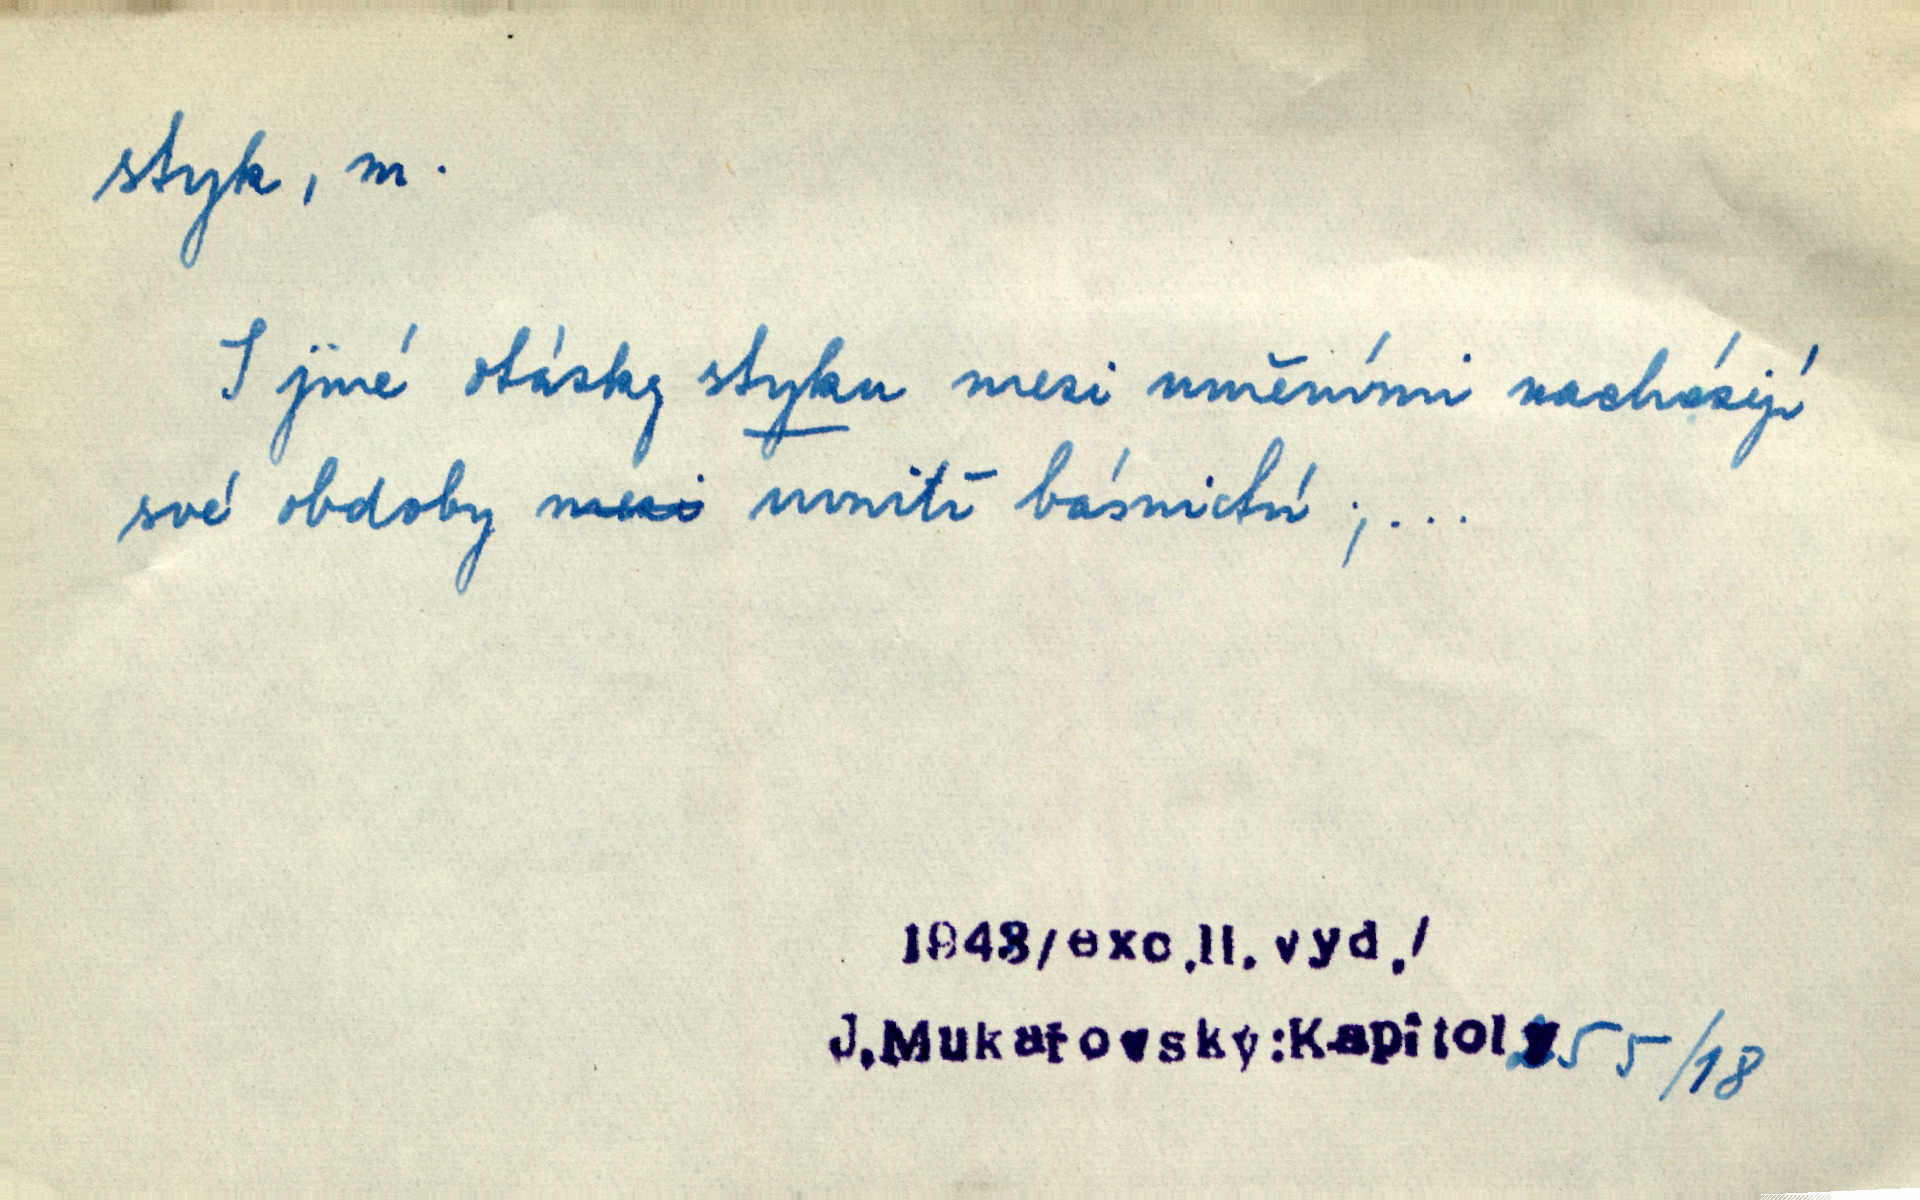 styk, m.
I jiné otázky styku mezi uměními nacházejí
své obdoby mezi uvnitř básnictví;...
1948/exc.II.vyd./
J.Mukařovský:Kapitoly 255/18